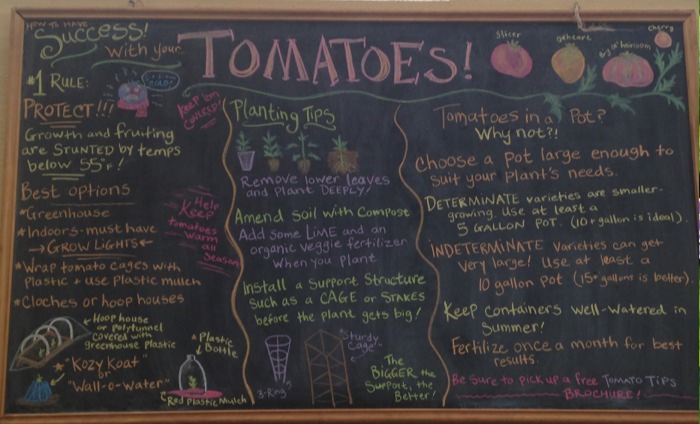 HOW TO HAVE
SUCCESS!
with your
TOMATOES!
#1 RULE:
PROTECT!!!
Keep 'em
COVERED!
Growth and fruiting
are STUNTED by temps
below 55°F!
Best options
*Greenhouse
*Indoors-must have
→GROW LIGHTS←
*Wrap tomato cages with
Plastic + use Plastic mulch
*Cloches or hoop houses
Help
Keep
tomatoes
warm
all
Season
Hoop house
or Polytunnel
covered with
greenhouse plastic
*"Kozy Koat"
or
"Wall-o-Water"
*Plastic
Bottle
Red Plastic Mulch
Planting Tips
Remove lower leaves
and Plant DEEPLY!
Amend Soil with Compost
Add Some LIME and an
organic veggie fertilizer
When you Plant
Install a Support Structure
Such as a CAGE or STAKES
before the plant gets big!
3-Ring
"Sturdy
Cage"
The
BIGGER the
Support, the
Better!
Slicer
big ol' heirloom
cherry
Tomatoes in a Pot?
Why not?!
Choose a Pot large enough to
suit your Plant's needs.
DETERMINATE varieties are smaller-
growing. Use at least a
5 GALLON POT. (10+ gallon is ideal)
INDETERMINATE varieties can get
very large! Use at least a
10 gallon Pot (15+ gallons is better)
Keep Containers well-watered in
Summer!
Fertilize once a month for best
results.
Be Sure to pick up a free TOMATO TIPS
BROCHURE!